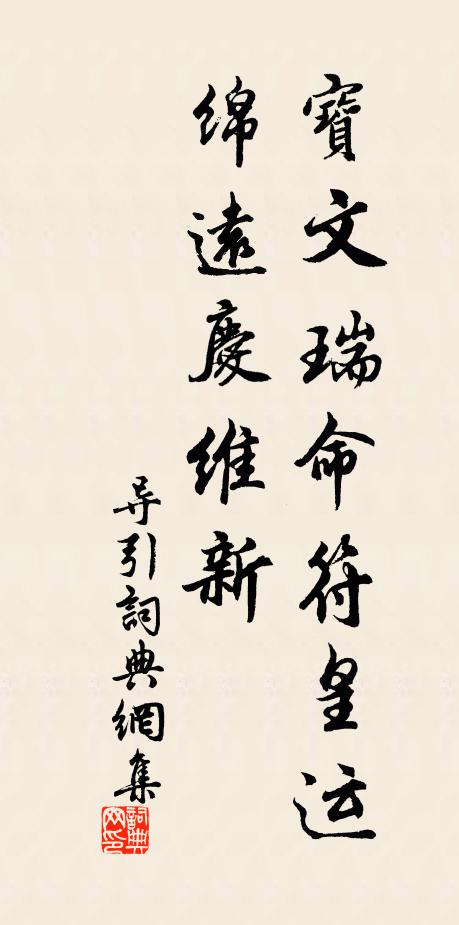 寶文瑞命符皇运
绵遠慶维新
导引詞典網集
詞典网印